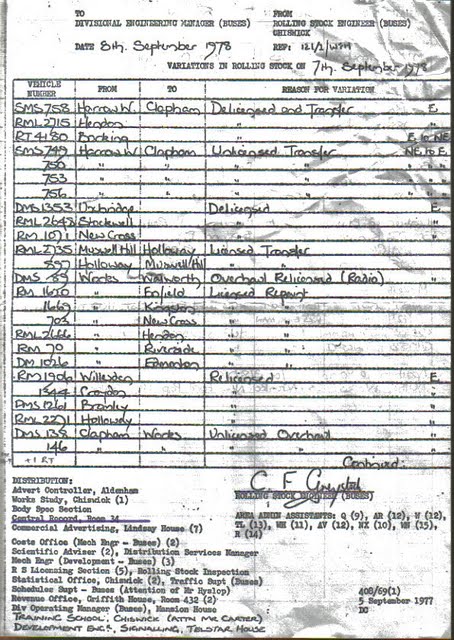 TO
DIVISIONAL ENGINEERING MANAGER (BUSES)
FROM
ROLLING STOCK ENGINEER (BUSES)
CHISWICK
DATE 8th. September 1978
REF:
VARIATIONS IN ROLLING STOCK ON 7th. September 1978
VEHICLE NUMBER FROM TO REASON FOR VARIATION
SMS 758 Harrow W. Clapham Delicensed and Transfer E.
RML 2715 Hendon " "
RT 4180 Barking " E. to NE
SMS 749 Harrow W Clapham Unlicensed Transfer NE to E.
750 " " " " "
753 " " " " "
756 " " " " "
DMS 1353 Uxbridge Delicensed E.
RML 2648 Stockwell " "
RM 1071 New Cross " "
RML 2735 Muswell Hill Holloway Licensed Transfer
897 Holloway Muswell Hill " "
DMS 89 Works Walworth Overhaul Relicensed (Radio)
RM 1620 " Enfield Licensed Repaint
1669 " Kingston " "
704 " New Cross " "
RML 2666 " Hendon " "
RM 70 " Riverside " "
DM 1026 " Edmonton " "
RM 1906 Willesden Relicensed E.
1344 Croydon " "
DMS 1261 Bromley " "
RML 2271 Holloway " "
DMS 138 Clapham Works Unlicensed Overhaul
146 " " " "
+1 RT
Continued:
DISTRIBUTION:
Advert Controller, Aldenham
Works Study, Chiswick (1)
Body Spec Section
Central Record, Room 14
Commercial Advertising, Lindsay House (7)
Costs Office (Mech Engr - Buses) (2)
Scientific Adviser (2), Distribution Services Manager
Mech Engr (Development - Buses) (3)
R S Licensing Section (5), Rolling Stock Inspection
Statistical Office, Chiswick (2), Traffic Supt (Buses)
Schedules Supt - Buses (Attention of Mr Hyslop)
Revenue Office, Griffith House, Room 432 (2)
Div Operating Manager (Buses), Mansion House
TRAINING SCHOOL, CHISWICK (ATTN MR. CARTER)
DEVELOPMENT ENGR, SIGNALLING, TELSTAR HOUSE
ROLLING STOCK ENGINEER (BUSES)
AREA ADMIN ASSISTANTS: Q (9), AR (12), W (12),
TL (13), WH (11), AV (12), NX (10), WN (15),
R (14)
408/69(1)
5 September 1977
DO